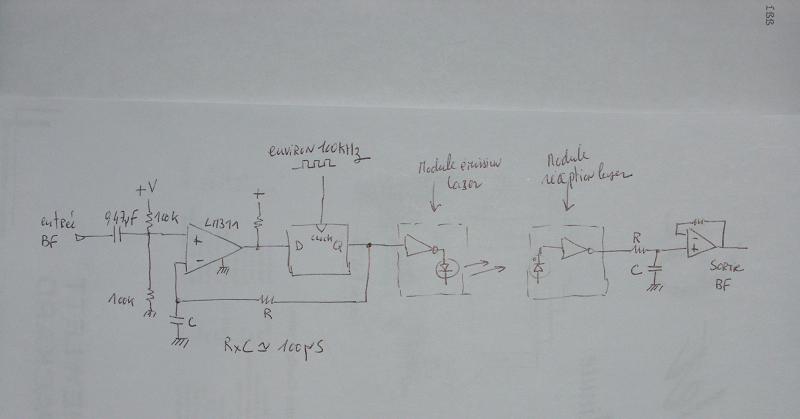 IBB
environ 100kHz
Module émission
laser
Module
réception laser
+V
entrée
BF
0,47µF
100k
LM311
+
+
-
D
clock
Q
R
C
-
+
SORTIE
BF
100k
C
R
R×C ≃ 100µS